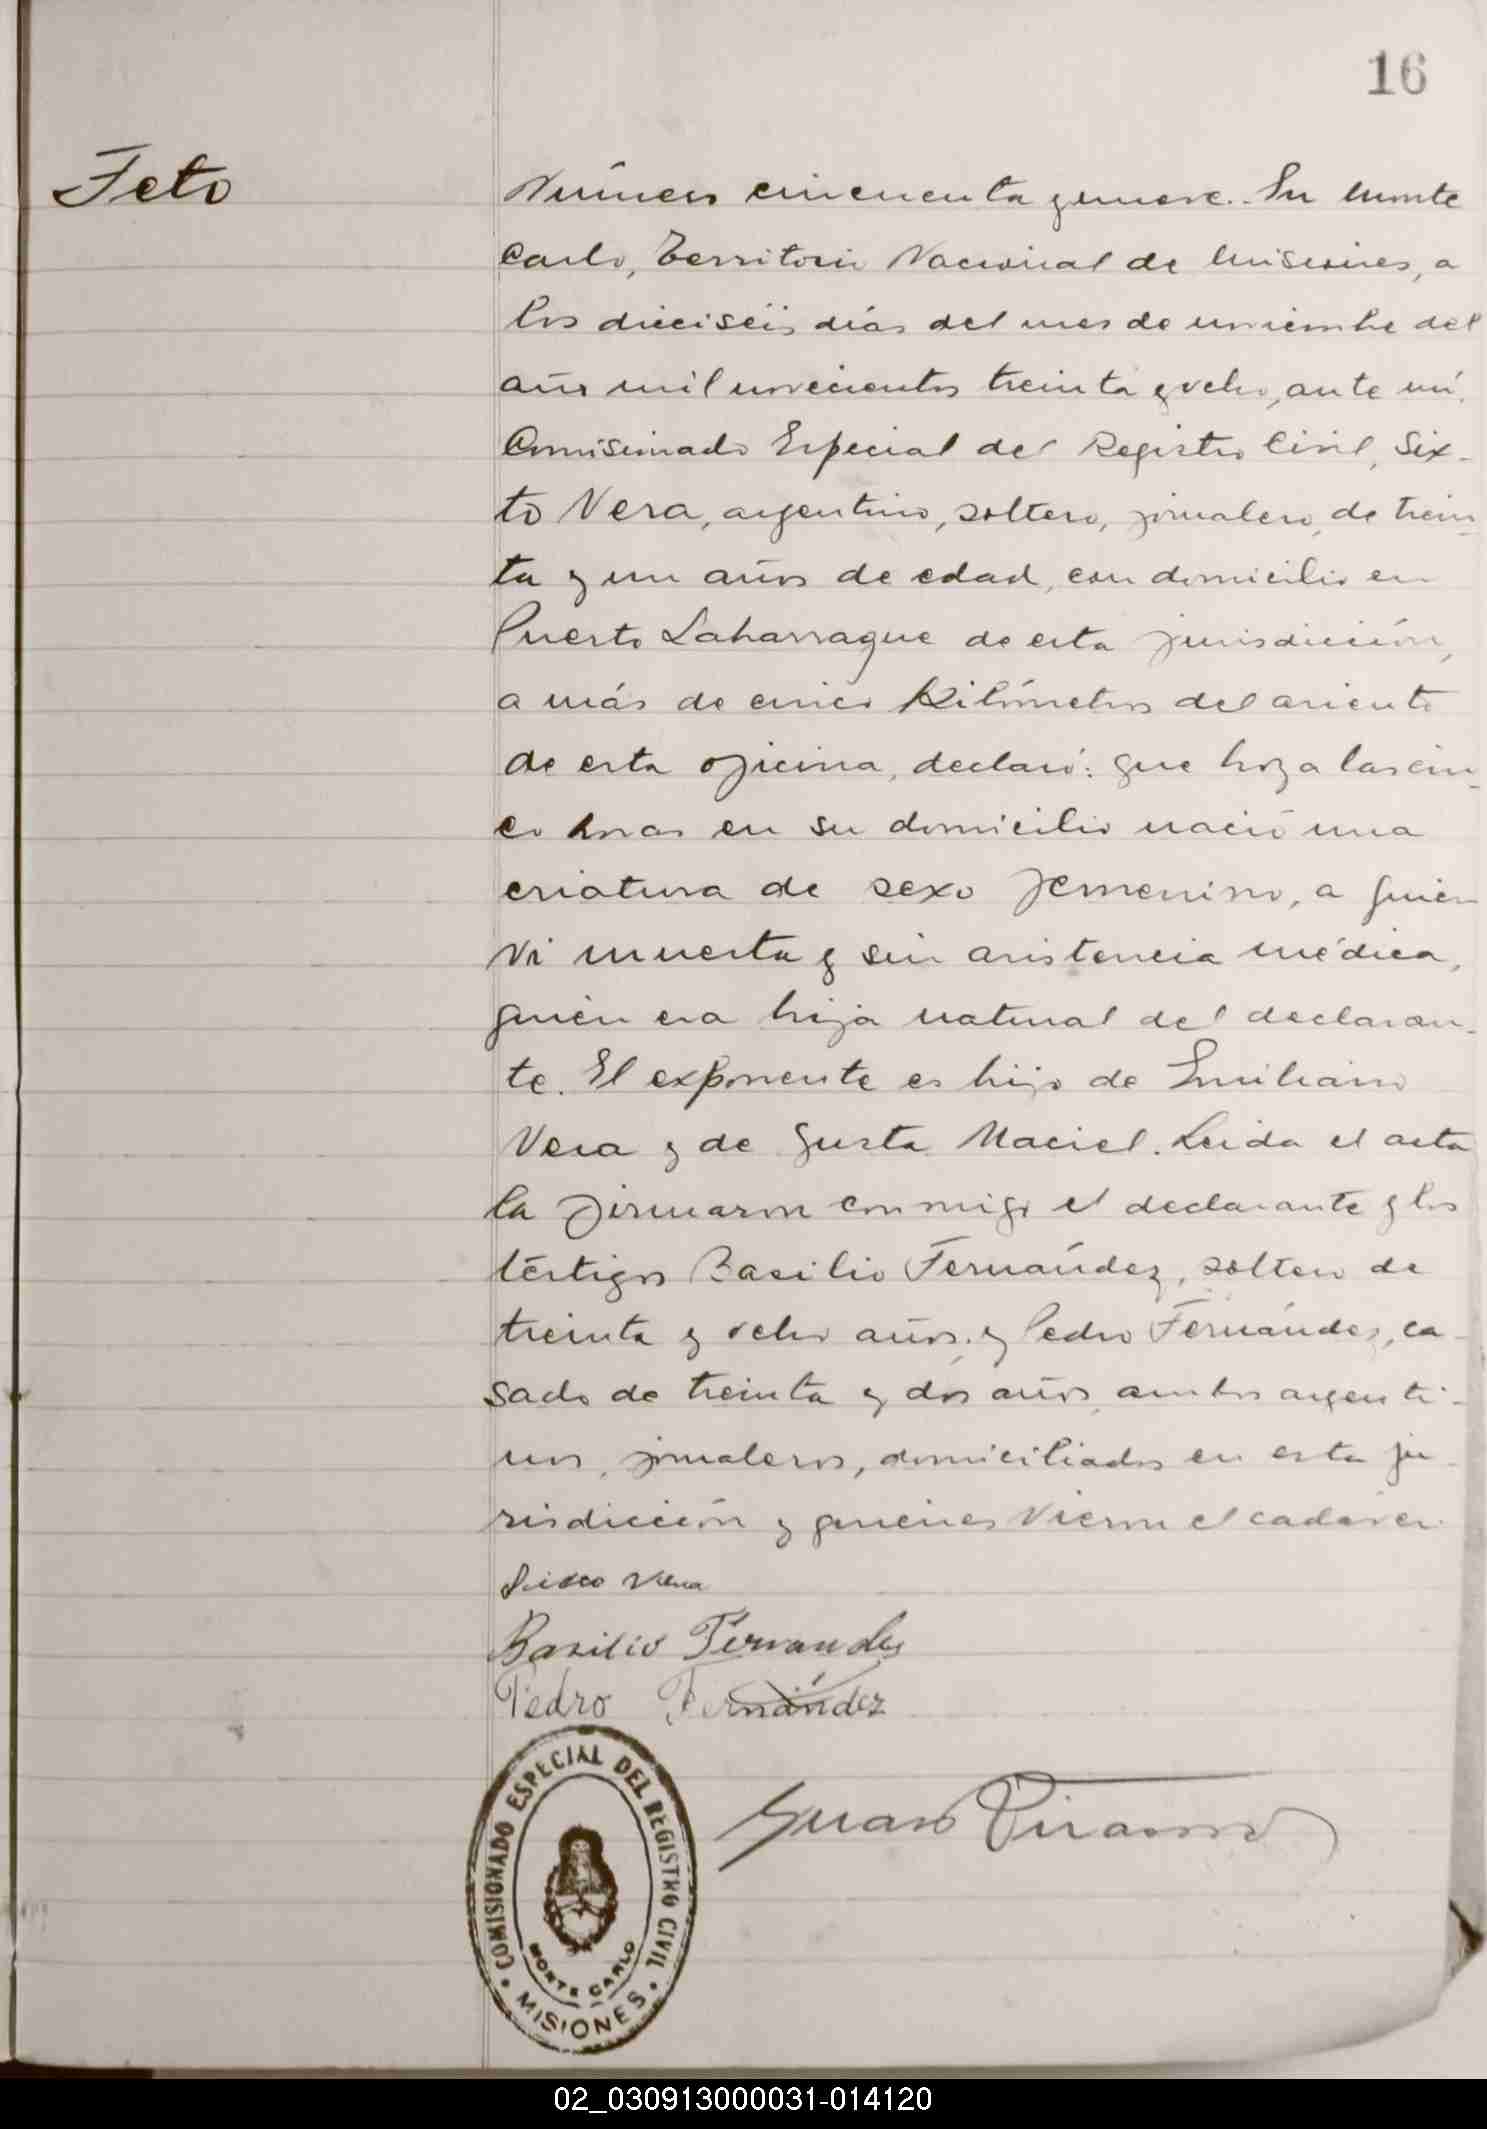 16
Feto
Número cincuenta y nueve. En Monte
Carlo, Territorio Nacional de Misiones, a
los dieciséis días del mes de noviembre del
año mil novecientos treinta y ocho, ante mí,
Comisionado Especial del Registro Civil, Six-
to Vera, argentino, soltero, jornalero, de trein-
ta y un años de edad, con domicilio en
Puerto Laharrague de esta jurisdicción,
a más de cinco kilómetros del asiento
de esta oficina, declaró: que hoy a las cin-
co horas en su domicilio nació una
criatura de sexo femenino, a quien
vi muerta y sin asistencia médica,
quien era hija natural del declaran-
te. El exponente es hijo de Emiliano
Vera y de Justa Maciel. Leida el acta
la firmaron conmigo el declarante y los
téstigos Basilio Fernández, soltero de
treinta y ocho años y Pedro Fernández, ca-
sado de treinta y dos años, ambos argenti-
nos, jornaleros, domiciliados en esta ju-
risdicción y quienes vieron el cadáver.
Sisto Vera
Basilio Fernandez
Pedro Fernández
COMISIONADO ESPECIAL DEL REGISTRO CIVIL
MONTE CARLO
MISIONES
02_030913000031-014120